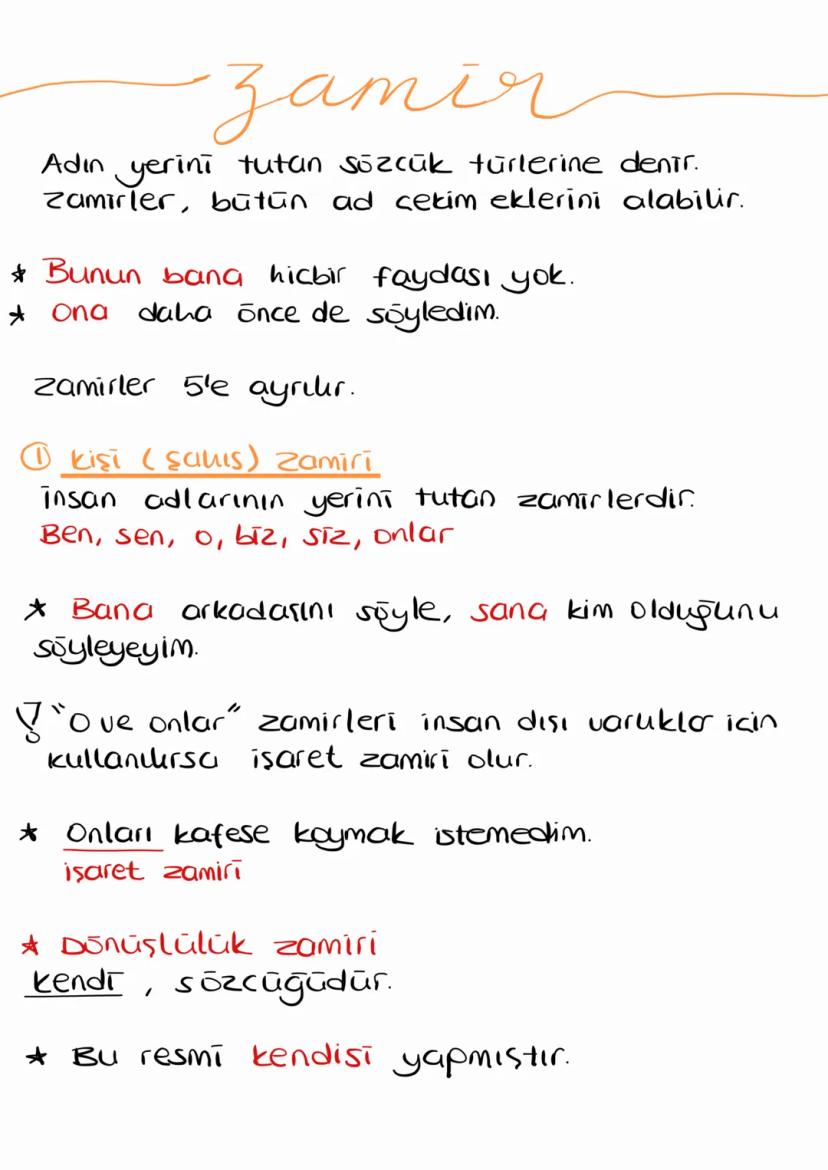 zamir
Adın yerini tutan sözcük türlerine denir.
zamirler, bütün ad çekim eklerini alabilir.
* Bunun bana hiçbir faydası yok.
* Ona daha önce de söyledim.
zamirler 5'e ayrılır.
① kişi (şahıs) zamiri
insan adlarının yerini tutan zamirlerdir.
Ben, sen, o, biz, siz, onlar
* Bana arkadaşını söyle, sana kim olduğunu
söyleyeyim.
! "O ve onlar" zamirleri insan dışı varlıklar için
kullanılırsa işaret zamiri olur.
* Onları kafese koymak istemedim.
işaret zamiri
* Dönüşlülük zamiri
kendi, sözcüğüdür.
* Bu resmi kendisi yapmıştır.